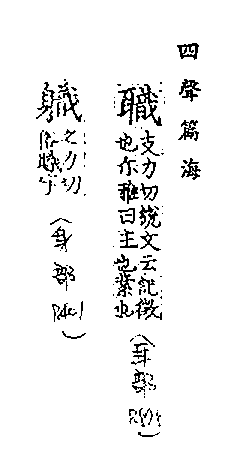 四聲篇海
職 支力切說文云記微
也尔雅曰主也業也
(耳部
軄 之力切
俗職字
(身部